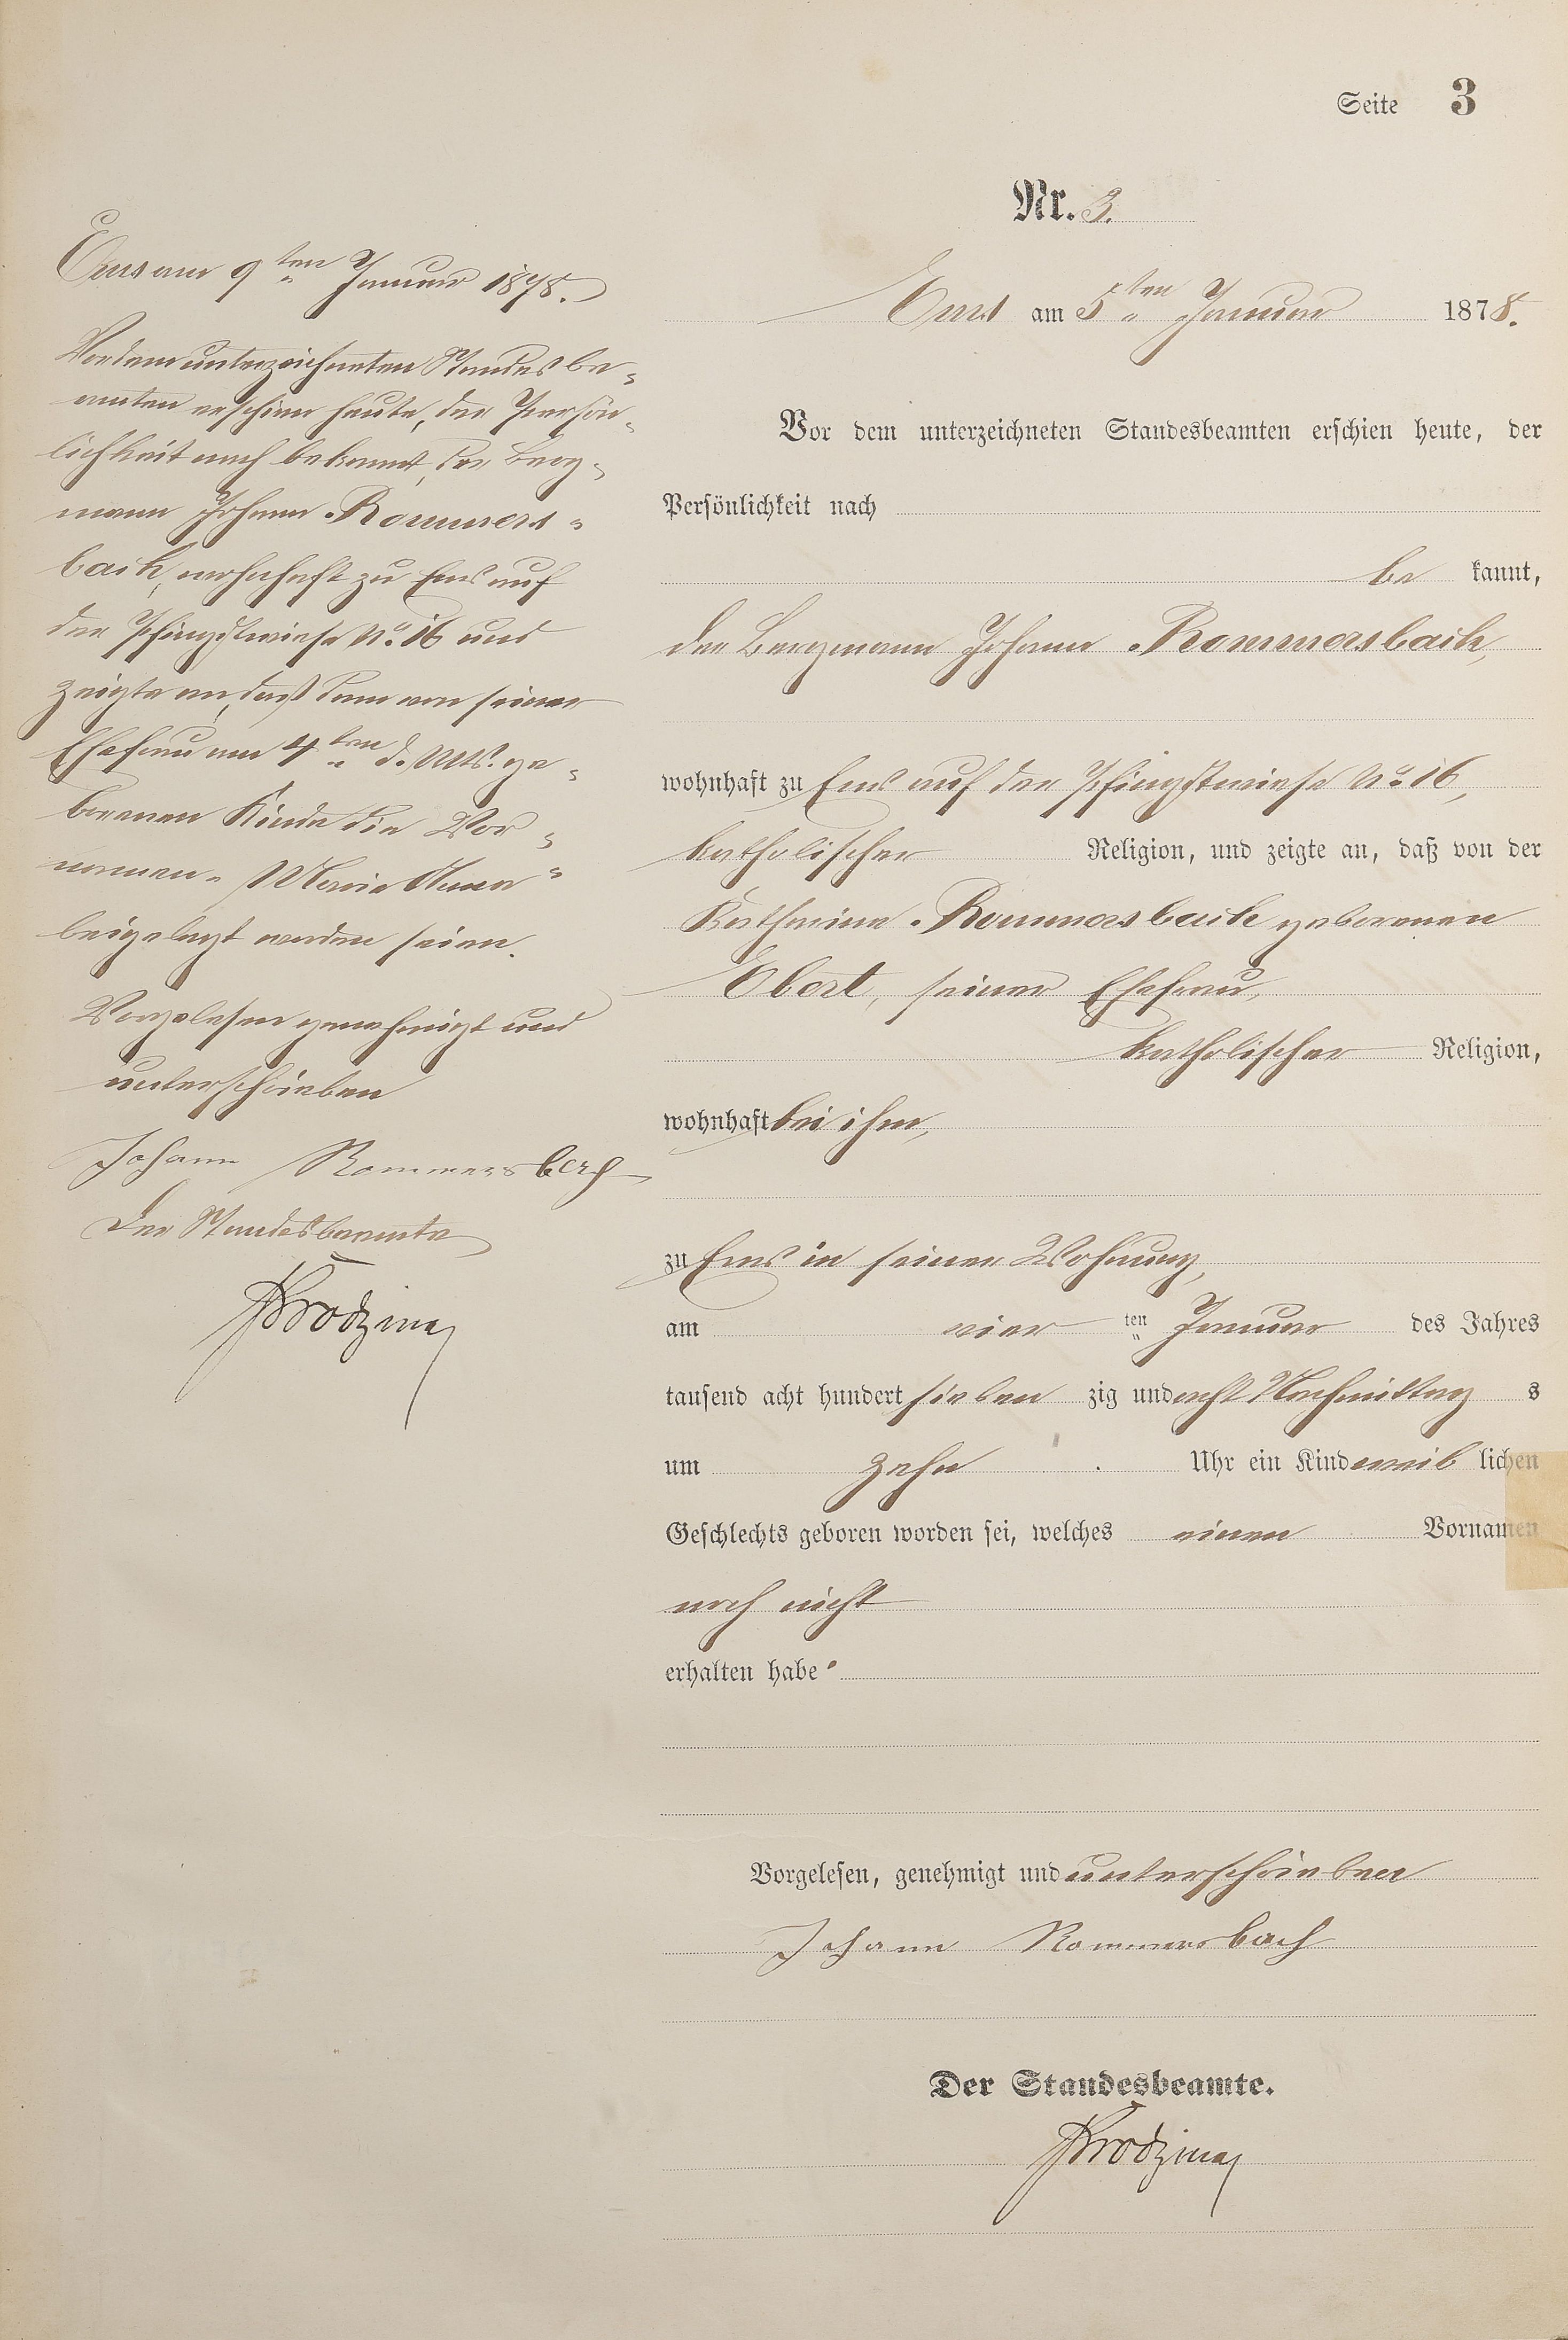 Seite 3
Nr. 3.
Ems am 9ten Januar 1878.
Vor dem unterzeichneten Standesbe-
amten erschien heute, der Persön-
lichkeit nach bekannt, der Berg-
mann Johann Rommers-
bach, wohnhaft zu Ems auf
der Pfingstwiese No. 16 und
zeigte an, daß dem von seiner
Ehefrau am 4ten d. Mts. ge-
borenen Kinde die Vor-
namen "Maria Anna"
beigelegt worden seien.
Vorgelesen genehmigt und
unterschrieben
Johann Rommersbach
Der Standesbeamte
Ems am 5ten Januar 1878.
Vor dem unterzeichneten Standesbeamten erschien heute, der
Persönlichkeit nach
be kannt,
der Bergmann Johann Rommersbach,
wohnhaft zu Ems auf der Pfingstwiese No. 16,
katholischer Religion, und zeigte an, daß von der
Katharina Rommersbach geborenen
Ebert, seiner Ehefrau,
katholischer Religion,
wohnhaft bei ihm,
zu Ems in seiner Wohnung,
am vier ten Januar des Jahres
tausend acht hundert sieben zig und acht Nachmittag s
um zehn Uhr ein Kind weib lichen
Geschlechts geboren worden sei, welches einen Vornamen
noch nicht
erhalten habe.
Vorgelesen, genehmigt und unterschrieben
Johann Rommersbach
Der Standesbeamte.